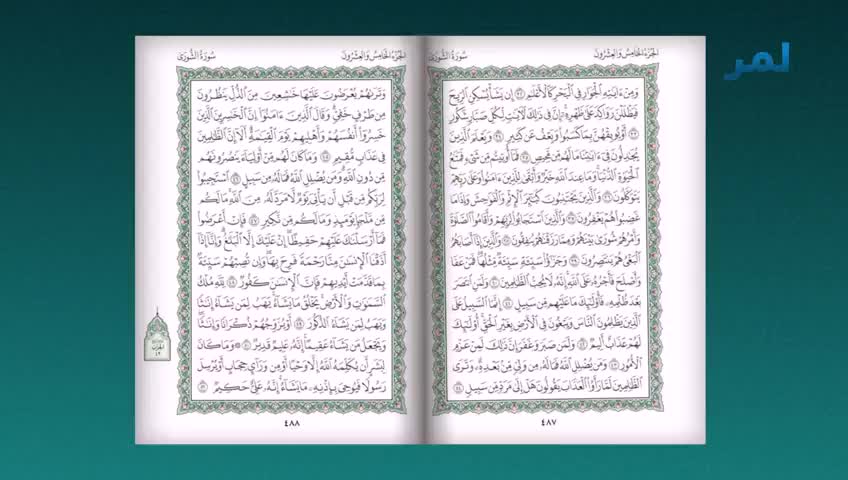 الجزء الخامس والعشرون
سورة الشورى
وَمِنْ ءَايَٰتِهِ ٱلْجَوَارِ فِي ٱلْبَحْرِ كَٱلْأَعْلَٰمِ ٣٢ إِن يَشَأْ يُسْكِنِ ٱلرِّيحَ
فَيَظْلَلْنَ رَوَاكِدَ عَلَىٰ ظَهْرِهِۦٓ إِنَّ فِي ذَٰلِكَ لَءَايَٰتٍ لِّكُلِّ صَبَّارٍ شَكُورٍ
٣٣ أَوْ يُوبِقْهُنَّ بِمَا كَسَبُوا۟ وَيَعْفُ عَن كَثِيرٍ ٣٤ وَيَعْلَمَ ٱلَّذِينَ
يُجَٰدِلُونَ فِيٓ ءَايَٰتِنَا مَا لَهُم مِّن مَّحِيصٍ ٣٥ فَمَآ أُوتِيتُم مِّن شَيْءٍ فَمَتَٰعُ
ٱلْحَيَوٰةِ ٱلدُّنْيَا وَمَا عِندَ ٱللَّهِ خَيْرٌ وَأَبْقَىٰ لِلَّذِينَ ءَامَنُوا۟ وَعَلَىٰ رَبِّهِمْ
يَتَوَكَّلُونَ ٣٦ وَٱلَّذِينَ يَجْتَنِبُونَ كَبَٰٓئِرَ ٱلْإِثْمِ وَٱلْفَوَٰحِشَ وَإِذَا مَا
غَضِبُوا۟ هُمْ يَغْفِرُونَ ٣٧ وَٱلَّذِينَ ٱسْتَجَابُوا۟ لِرَبِّهِمْ وَأَقَامُوا۟ ٱلصَّلَوٰةَ
وَأَمْرُهُمْ شُورَىٰ بَيْنَهُمْ وَمِمَّا رَزَقْنَٰهُمْ يُنفِقُونَ ٣٨ وَٱلَّذِينَ إِذَآ أَصَابَهُمُ
ٱلْبَغْيُ هُمْ يَنتَصِرُونَ ٣٩ وَجَزَٰٓؤُا۟ سَيِّئَةٍ سَيِّئَةٌ مِّثْلُهَا فَمَنْ عَفَا
وَأَصْلَحَ فَأَجْرُهُۥ عَلَى ٱللَّهِ إِنَّهُۥ لَا يُحِبُّ ٱلظَّٰلِمِينَ ٤٠ وَلَمَنِ ٱنتَصَرَ
بَعْدَ ظُلْمِهِۦ فَأُو۟لَٰٓئِكَ مَا عَلَيْهِم مِّن سَبِيلٍ ٤١ إِنَّمَا ٱلسَّبِيلُ عَلَى
ٱلَّذِينَ يَظْلِمُونَ ٱلنَّاسَ وَيَبْغُونَ فِي ٱلْأَرْضِ بِغَيْرِ ٱلْحَقِّ أُو۟لَٰٓئِكَ
لَهُمْ عَذَابٌ أَلِيمٌ ٤٢ وَلَمَن صَبَرَ وَغَفَرَ إِنَّ ذَٰلِكَ لَمِنْ عَزْمِ
ٱلْأُمُورِ ٤٣ وَمَن يُضْلِلِ ٱللَّهُ فَمَا لَهُۥ مِن وَلِيٍّ مِّنۢ بَعْدِهِۦ وَتَرَى
ٱلظَّٰلِمِينَ لَمَّا رَأَوُا۟ ٱلْعَذَابَ يَقُولُونَ هَلْ إِلَىٰ مَرَدٍّ مِّن سَبِيلٍ ٤٤
٤٨٧
الجزء الخامس والعشرون
سورة الشورى
وَتَرَىٰهُمْ يُعْرَضُونَ عَلَيْهَا خَٰشِعِينَ مِنَ ٱلذُّلِّ يَنظُرُونَ
مِن طَرْفٍ خَفِيٍّ وَقَالَ ٱلَّذِينَ ءَامَنُوٓا۟ إِنَّ ٱلْخَٰسِرِينَ ٱلَّذِينَ
خَسِرُوٓا۟ أَنفُسَهُمْ وَأَهْلِيهِمْ يَوْمَ ٱلْقِيَٰمَةِ أَلَآ إِنَّ ٱلظَّٰلِمِينَ
فِي عَذَابٍ مُّقِيمٍ ٤٥ وَمَا كَانَ لَهُم مِّنْ أَوْلِيَآءَ يَنصُرُونَهُم
مِّن دُونِ ٱللَّهِ وَمَن يُضْلِلِ ٱللَّهُ فَمَا لَهُۥ مِن سَبِيلٍ ٤٦ ٱسْتَجِيبُوا۟
لِرَبِّكُم مِّن قَبْلِ أَن يَأْتِيَ يَوْمٌ لَّا مَرَدَّ لَهُۥ مِنَ ٱللَّهِ مَا لَكُم
مِّن مَّلْجَإٍ يَوْمَئِذٍ وَمَا لَكُم مِّن نَّكِيرٍ ٤٧ فَإِنْ أَعْرَضُوا۟
فَمَآ أَرْسَلْنَٰكَ عَلَيْهِمْ حَفِيظًا إِنْ عَلَيْكَ إِلَّا ٱلْبَلَٰغُ وَإِنَّآ إِذَآ
أَذَقْنَا ٱلْإِنسَٰنَ مِنَّا رَحْمَةً فَرِحَ بِهَا وَإِن تُصِبْهُمْ سَيِّئَةٌۢ
بِمَا قَدَّمَتْ أَيْدِيهِمْ فَإِنَّ ٱلْإِنسَٰنَ كَفُورٌ ٤٨ لِّلَّهِ مُلْكُ
ٱلسَّمَٰوَٰتِ وَٱلْأَرْضِ يَخْلُقُ مَا يَشَآءُ يَهَبُ لِمَن يَشَآءُ إِنَٰثًا
وَيَهَبُ لِمَن يَشَآءُ ٱلذُّكُورَ ٤٩ أَوْ يُزَوِّجُهُمْ ذُكْرَانًا وَإِنَٰثًا
وَيَجْعَلُ مَن يَشَآءُ عَقِيمًا إِنَّهُۥ عَلِيمٌ قَدِيرٌ ٥٠ وَمَا كَانَ
لِبَشَرٍ أَن يُكَلِّمَهُ ٱللَّهُ إِلَّا وَحْيًا أَوْ مِن وَرَآئِ حِجَابٍ أَوْ يُرْسِلَ
رَسُولًا فَيُوحِيَ بِإِذْنِهِۦ مَا يَشَآءُ إِنَّهُۥ عَلِيٌّ حَكِيمٌ ٥١
٤٨٨
الحزب
٤٩
لمر